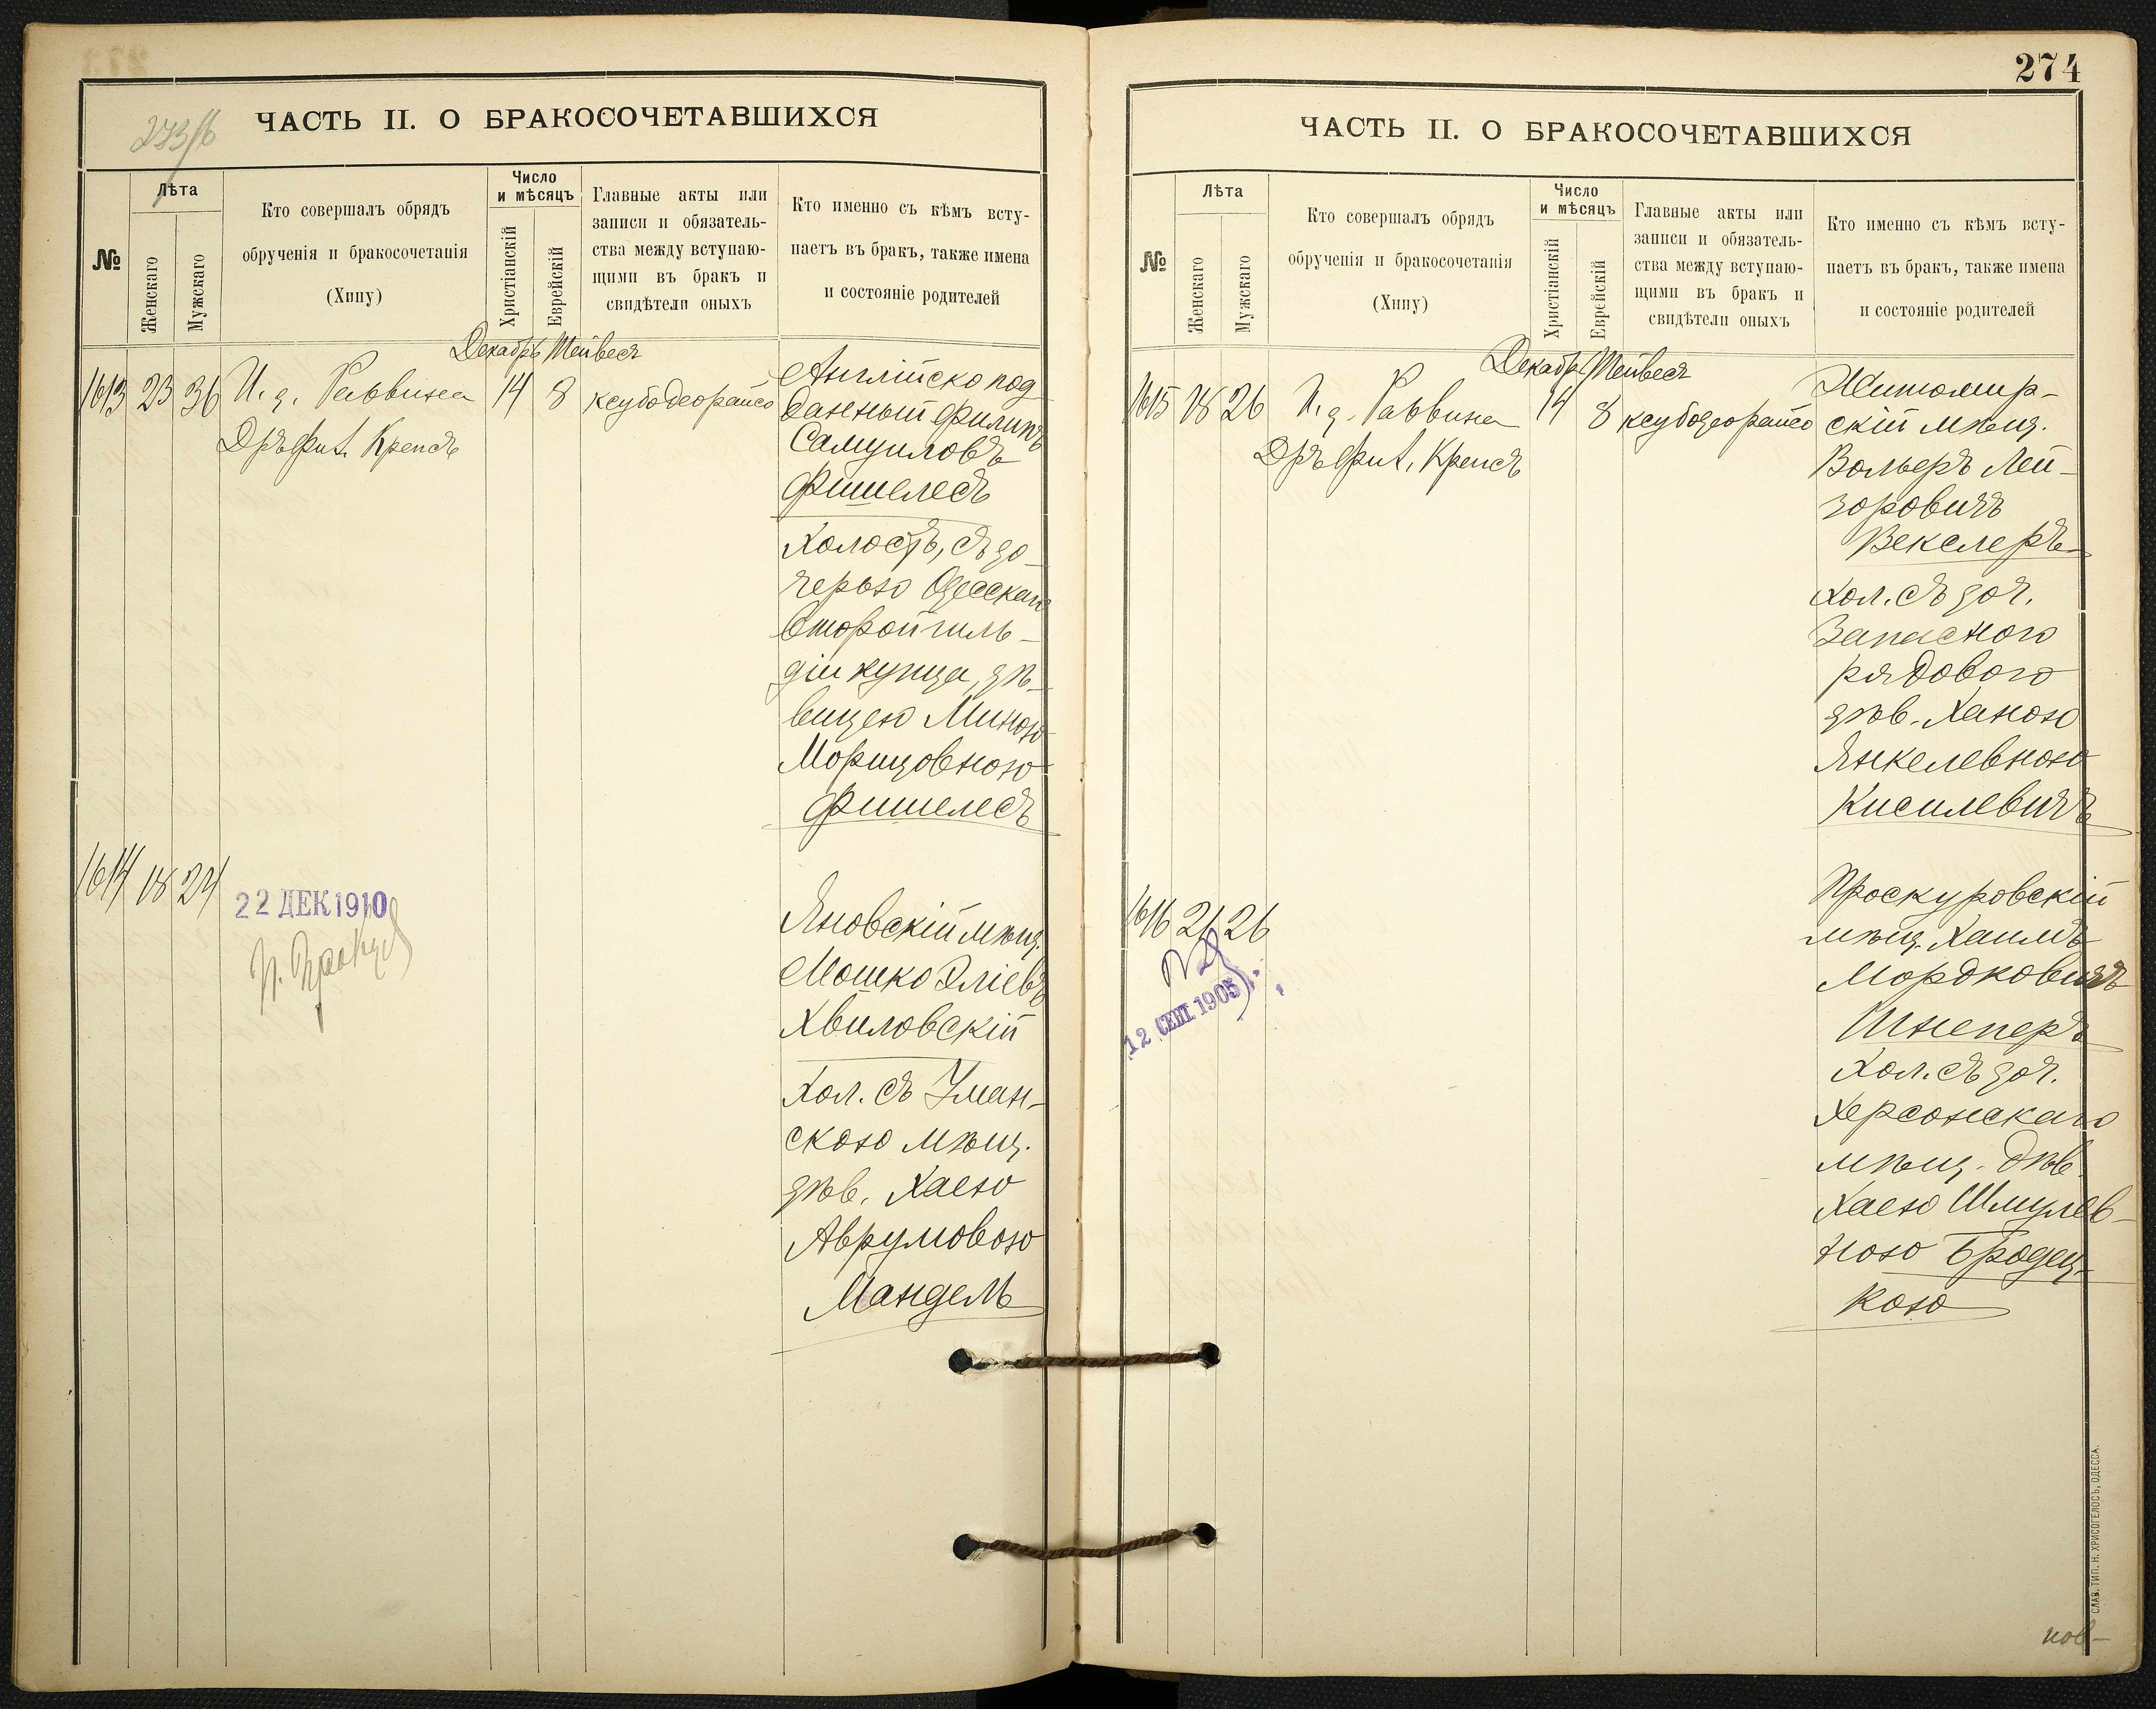 273/б
ЧАСТЬ II. О БРАКОСОЧЕТАВШИХСЯ
№
Лѣта
Женскаго
Мужскаго
Кто совершалъ обрядъ
обрученія и бракосочетанія
(Хипу)
Число
и мѣсяцъ
Христіанскій
Еврейскій
Главные акты или
записи и обязатель-
ства между вступаю-
щими въ бракъ и
свидѣтели оныхъ
Кто именно съ кѣмъ всту-
паетъ въ бракъ, также имена
и состояніе родителей
Декабрь Тейвесъ
1613 23 36 И. д. Раввина 14 8 ксубодеорайсо
Дръ Фил. Крепсъ
Англійско под
данный Филипъ
Самуиловъ
Фишелесъ
Холостъ, съ до-
черью Одесскаго
второй гиль-
діи купца, дѣ-
вицею Миною
Морицовною
Фишелесъ
1614 18 24
22 ДЕК 1910
Яновскій мѣщ.
Мошко Эліевъ
Хвиловскій
Хол. съ Уман-
скою мѣщ.
дѣв. Хаею
Аврумовою
Мандель
274
ЧАСТЬ II. О БРАКОСОЧЕТАВШИХСЯ
№
Лѣта
Женскаго
Мужскаго
Кто совершалъ обрядъ
обрученія и бракосочетанія
(Хипу)
Число
и мѣсяцъ
Христіанскій
Еврейскій
Главные акты или
записи и обязатель-
ства между вступаю-
щими въ бракъ и
свидѣтели оныхъ
Кто именно съ кѣмъ всту-
паетъ въ бракъ, также имена
и состояніе родителей
Декабрь Тейвесъ
1615 18 26 И. д. Раввина 14 8 ксубодеорайсо
Дръ Фил. Крепсъ
Житомир-
скій мѣщ.
Вольеръ Лей-
зоровичъ
Векслеръ
хол. съ доч.
Запасного
рядового
дѣв. Ханою
Янкелевною
Кисилевичъ
1616 21 26
12 СЕН 1905
Проскуровскій
мѣщ. Хаимъ
Мордковичъ
Шнеперъ
Хол. съ доч.
Херсонскаго
мѣщ. дѣв.
Хаею Шмулев-
ною Бродец-
кою
СЛАВ. ТИП. Н. ХРИСОГЕЛОСЪ, ОДЕССА.